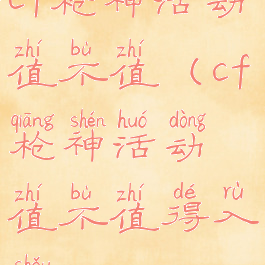 cf枪神活动
zhí bù zhí
值不值（cf
qiāng shén huó dòng
枪神活动
zhí bù zhí dé rù
值不值得入
shǒu